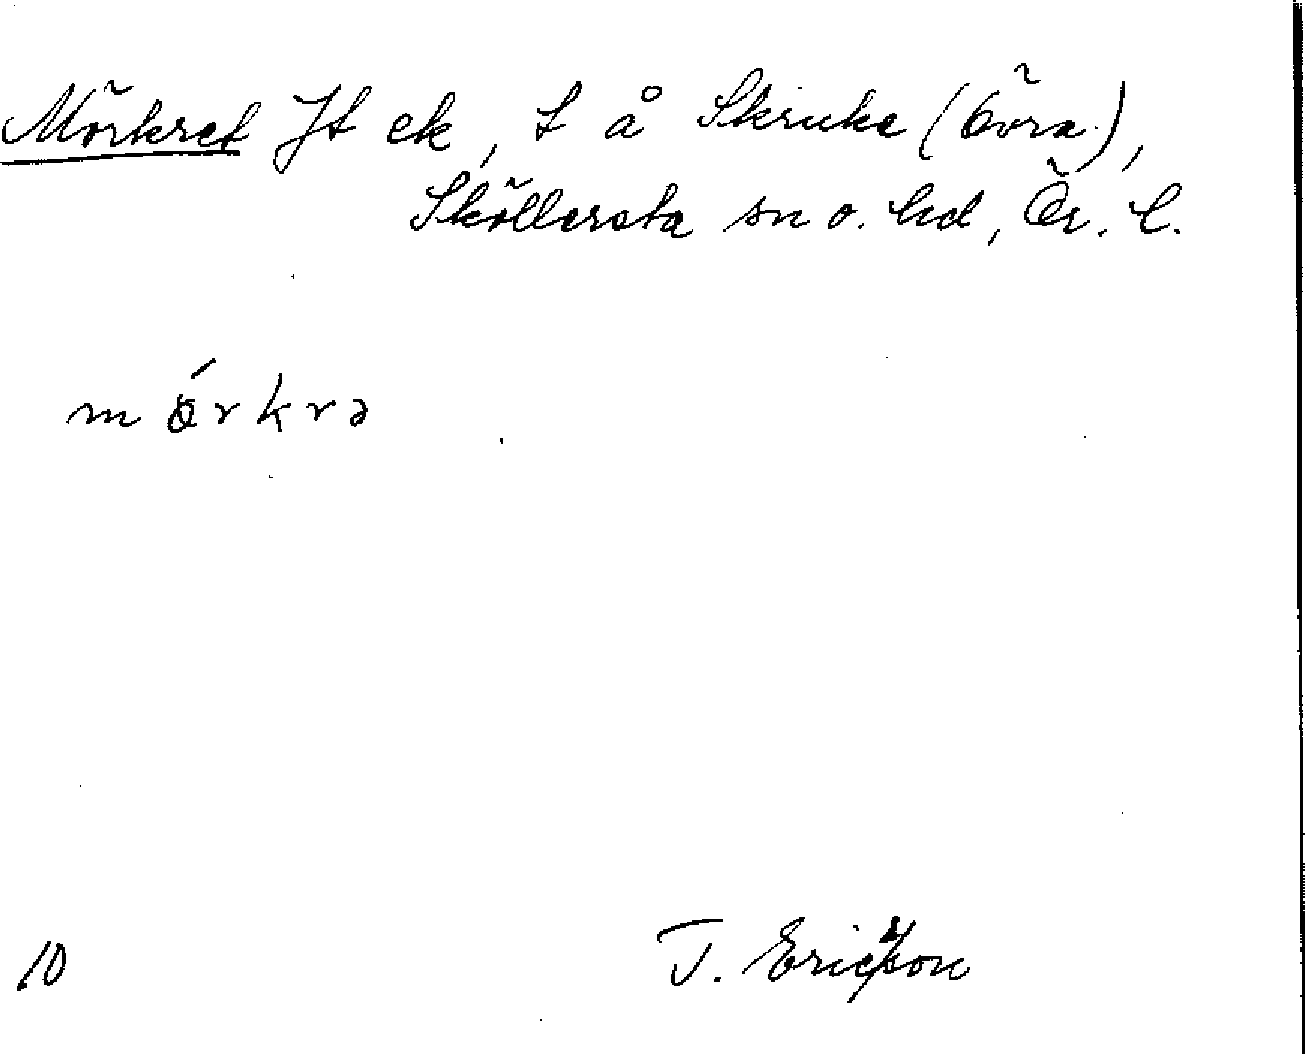 Mörkret Jt ek, t å Skruke (Övra),
Sköllersta sn o. hd, Ör. l.
mö́rkrə
10
T. Ericsson